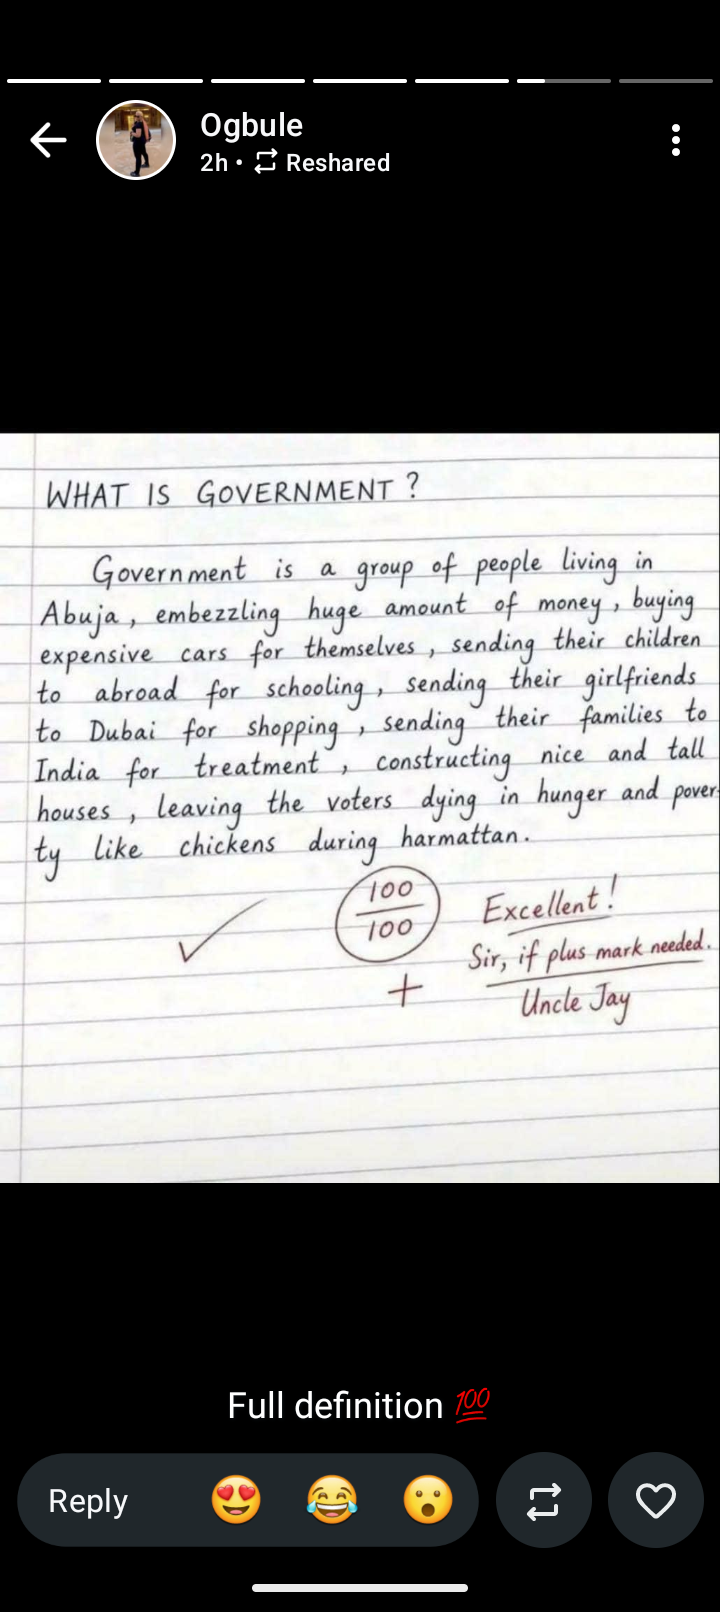 Ogbule
2h • Reshared
WHAT IS GOVERNMENT ?
Government is a group of people living in
Abuja, embezzling huge amount of money, buying
expensive cars for themselves, sending their children
to abroad for schooling, sending their girlfriends
to Dubai for shopping, sending their families to
India for treatment, constructing nice and tall
houses, leaving the voters dying in hunger and pover-
ty like chickens during harmattan.
100
100
+
Excellent!
Sir, if plus mark needed.
Uncle Jay
Full definition 💯
Reply